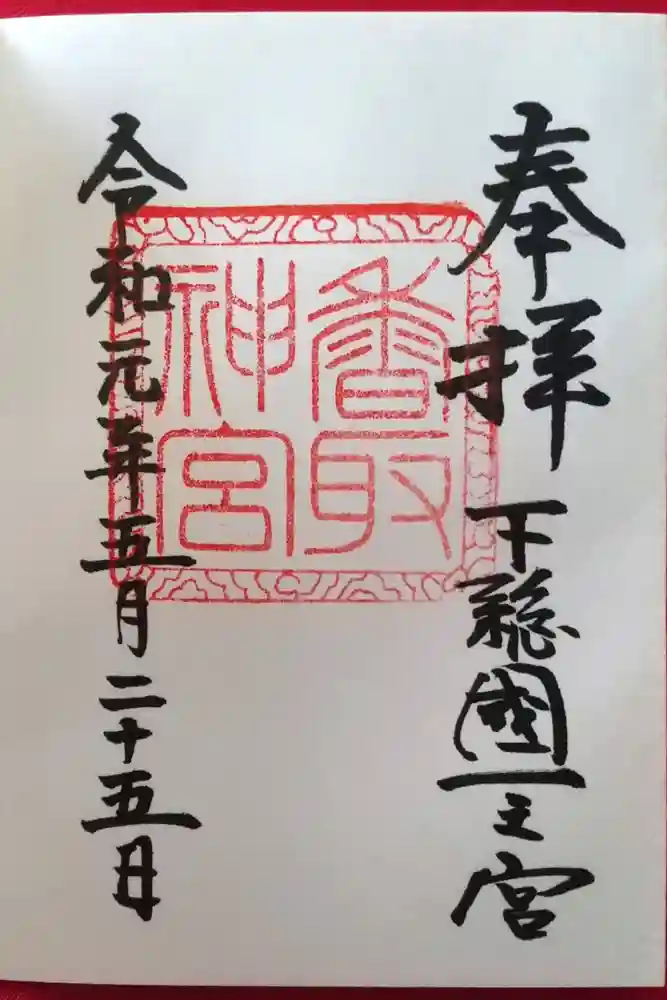 奉拝 下総國一之宮
香取
神宮
令和元年五月二十五日